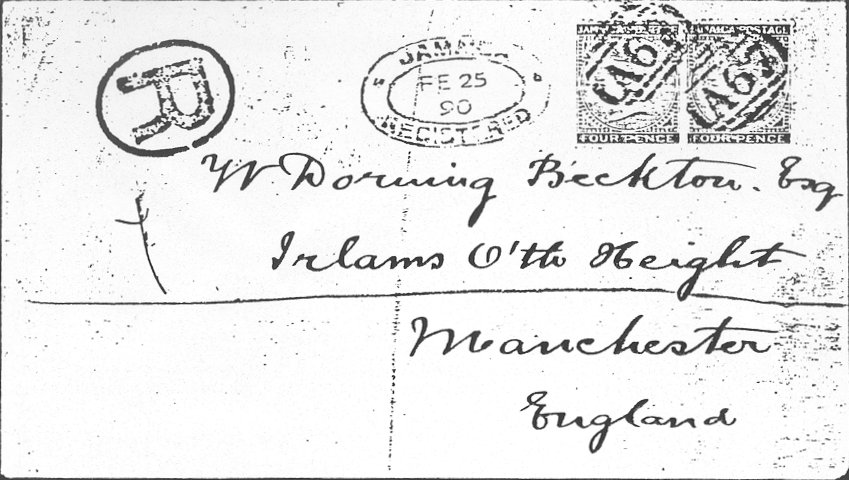 R
JAMAICA
FE 25
90
REGISTERED
JAMAICA POSTAGE
FOUR PENCE
A67
JAMAICA POSTAGE
FOUR PENCE
A67
W Dorning Beckton. Esq
Irlams O'th Height
Manchester
England